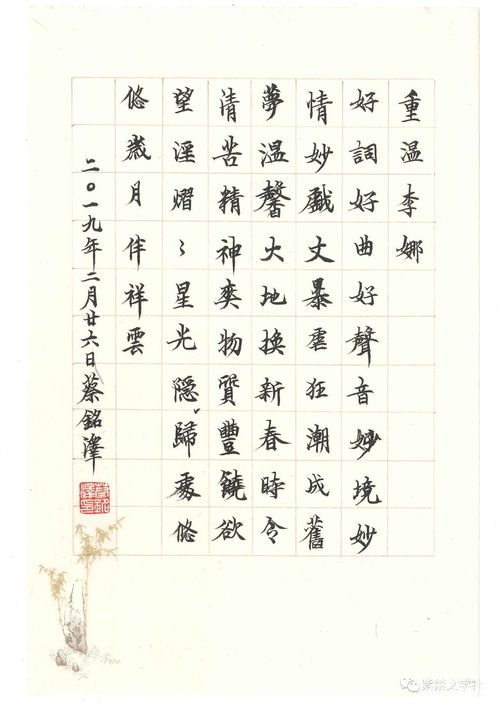 重温李娜
好詞好曲好聲音妙境妙
情妙戲文暴虐狂潮成舊
夢温馨大地換新春時令
清苦精神爽物質豐饒欲
望淫熠〻星光隱歸處悠
悠歲月伴祥雲
二〇一九年二月廿六日蔡銘澤